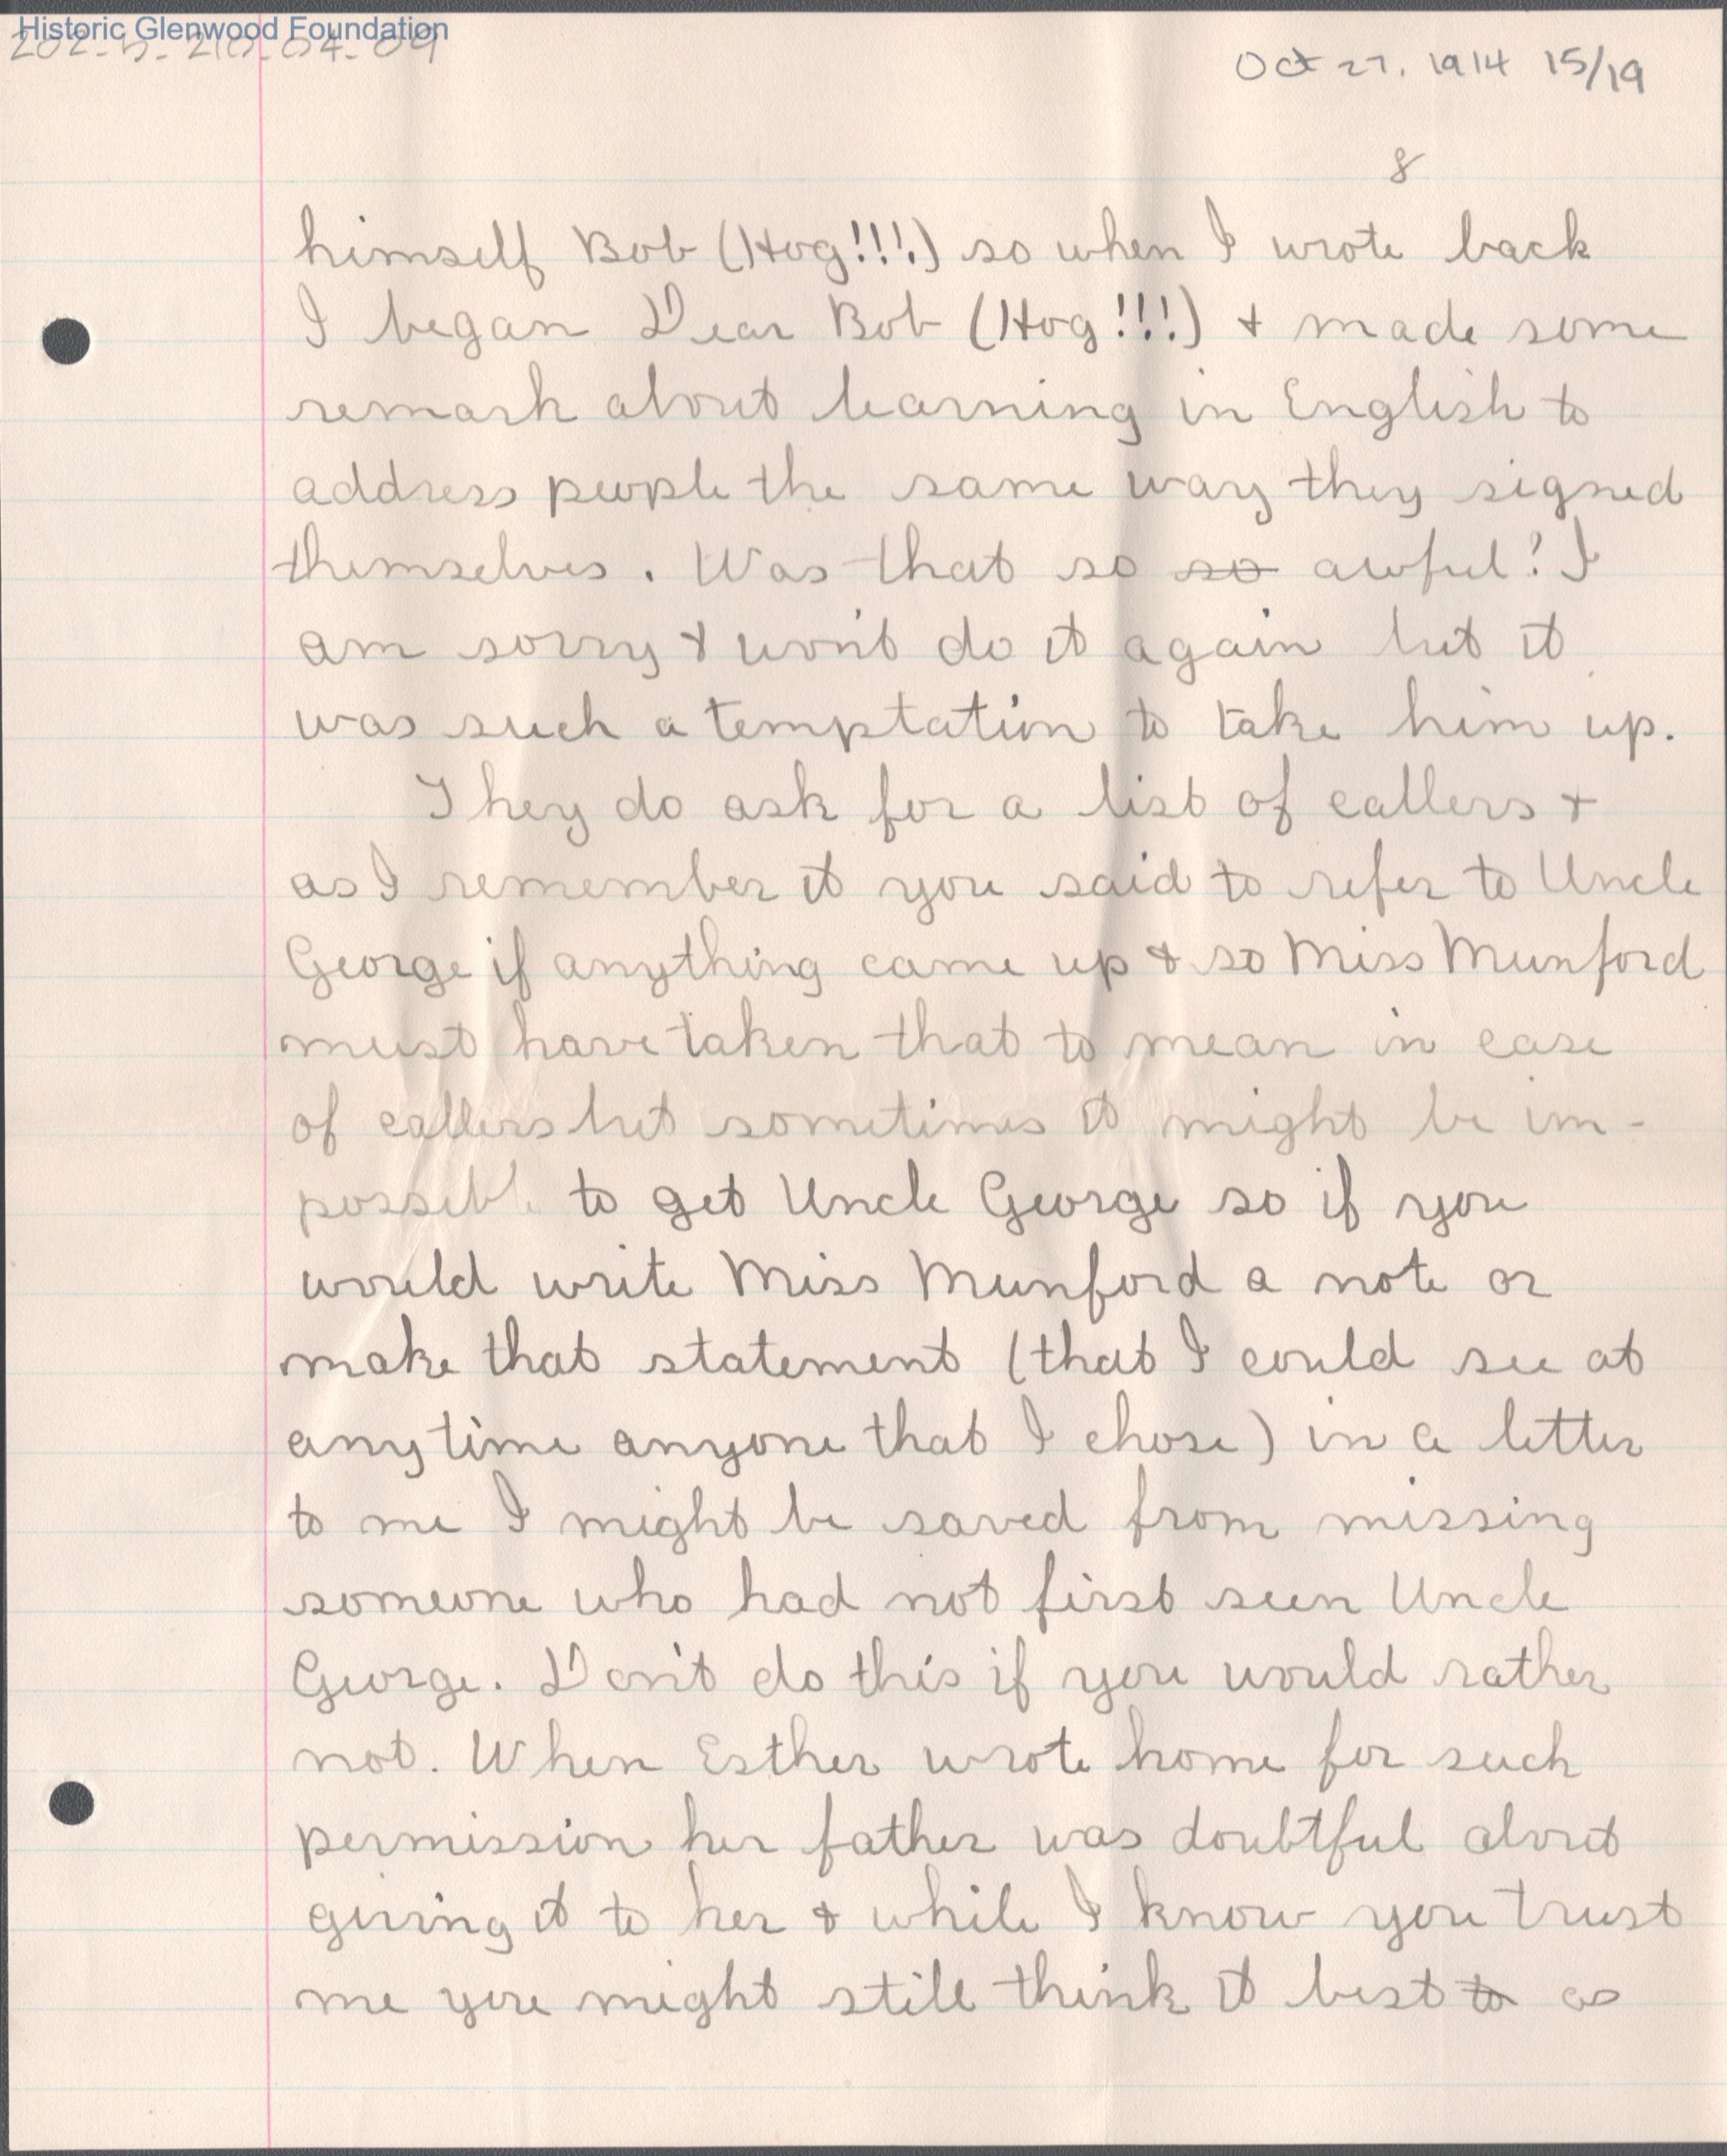 Historic Glenwood Foundation
202-5-210-04-09
Oct 27. 1914 15/19
8
himself Bob (Hog!!!) so when I wrote back
I began Dear Bob (Hog!!!) + made some
remark about learning in English to
address people the same way they signed
themselves. Was that so so awful? I
am sorry & won't do it again but it
was such a temptation to take him up.
They do ask for a list of callers +
as I remember it you said to refer to Uncle
George if anything came up & so Miss Munford
must have taken that to mean in case
of callers but sometimes it might be im-
possible to get Uncle George so if you
would write Miss Munford a note or
make that statement (that I could see at
anytime anyone that I chose) in a letter
to me I might be saved from missing
someone who had not first seen Uncle
George. Don't do this if you would rather
not. When Esther wrote home for such
permission her father was doubtful about
giving it to her & while I know you trust
me you might still think it best to as